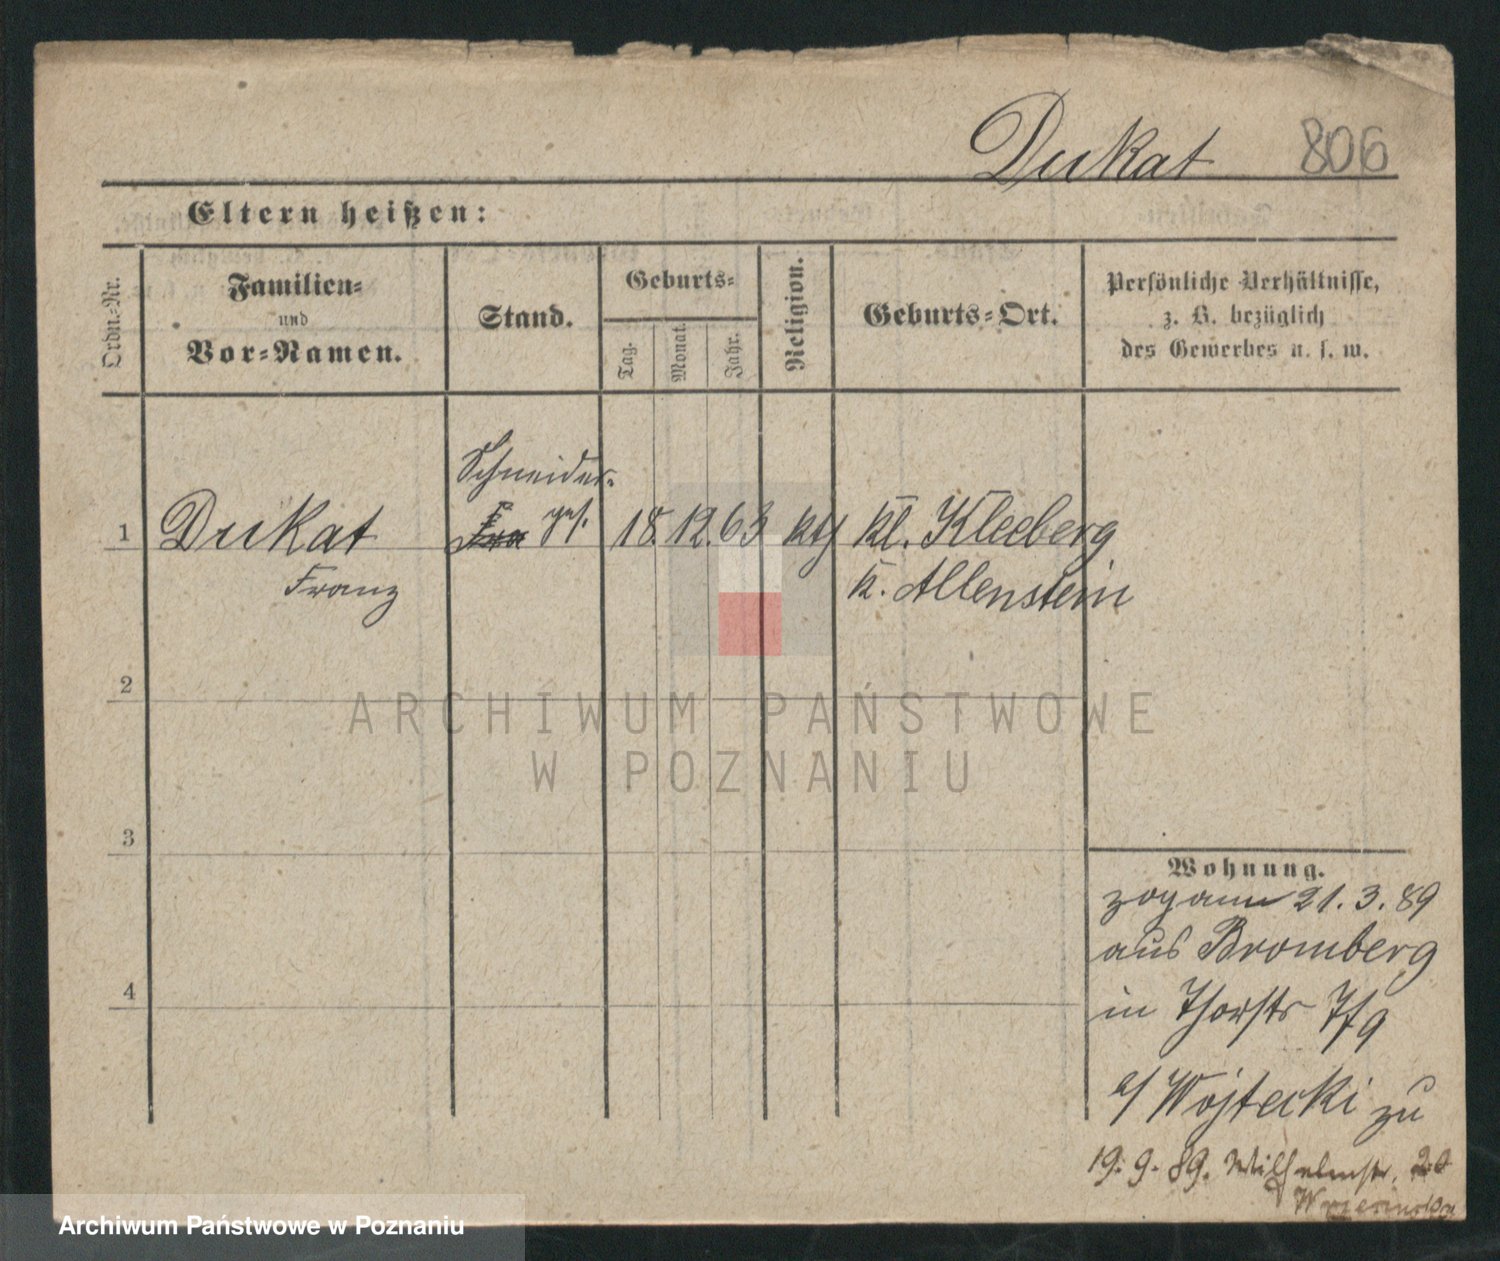 Dukat 806
Eltern heißen:
Ordn.-Nr.
Familien-
und
Vor-Namen.
Stand.
Geburts-
Tag.
Monat.
Jahr.
Religion.
Geburts-Ort.
Persönliche Verhältnisse,
z. B. bezüglich
des Gewerbes u. s. w.
Schneider-
1 Dukat ges. 18. 12. 63 kth Kl. Kleeberg
Franz K. Allenstein
2
3
4
Wohnung.
21. 3. 89
aus Bromberg
in
Wojtecki zu
19. 9. 89. Wilhelmstr.
ARCHIWUM PAŃSTWOWE
W POZNANIU
Archiwum Państwowe w Poznaniu